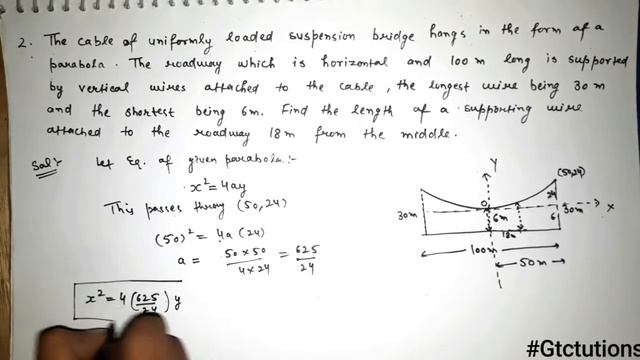 2. The cable of uniformly loaded suspension bridge hangs in the form of a
parabola. The roadway which is horizontal and 100 m long is supported
by vertical wires attached to the cable, the longest wire being 30 m
and the shortest being 6m. Find the length of a supporting wire
attached to the roadway 18 m from the middle.
Sol:-
Let Eq. of given parabola:-
x² = 4ay
This passes throug (50,24)
(50)² = 4a (24)
a = 50 × 50 / 4 × 24 = 625 / 24
x² = 4 (625/24) y
Y
(50,24)
24
O
30m
6m
6
30m
X
18m
100m
50 m
#Gtctutions